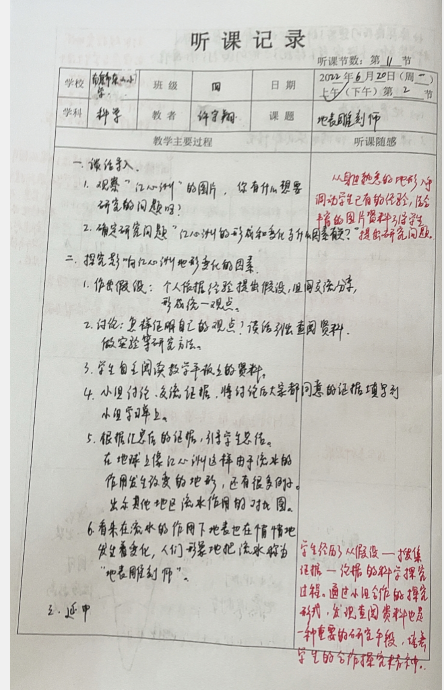 听课记录
听课节数：第 11 节
学校
班级 四 日期 2022年6月20日（周一）
上午（下午）第 2 节
学科 科学 教者 许字翔 课题 地表雕刻师
教学主要过程 听课随感
一、谈话导入
1. 观察“江心洲”的图片，你有什么想要
研究的问题吗？
2. 确定研究问题“江心洲的形成和变化与什么因素有关？”
二、探究影响江心洲地形变化的因素.
1. 作出假设：个人依据经验提出假设，组间交流分享，
形成统一观点。
2. 讨论：怎样证明自己的观点？谈话引出查阅资料.
做实验等研究方法。
3. 学生自主阅读数字平板上的资料。
4. 小组讨论、交流证据，将讨论后大家都同意的证据填写到
小组学习单上。
5. 根据汇总后的证据，引导学生总结。
在地球上像江心洲这样由于流水的
作用发生改变的地形，还有很多的。
出示其他地区流水作用的对比图。
6. 看来在流水的作用下地表也在悄悄地
发生着变化，人们形象地把流水称为
“地表雕刻师”。
三、延伸
从身边熟悉的地形入手
调动学生已有的经验，结合
丰富的图片资料引导学生
提出研究问题。
学生经历从假设—搜集
证据—论据的科学探究
过程。通过小组合作的探究
形式，发现查阅资料也是
一种重要的研究手段，培养
学生的合作探究精神。